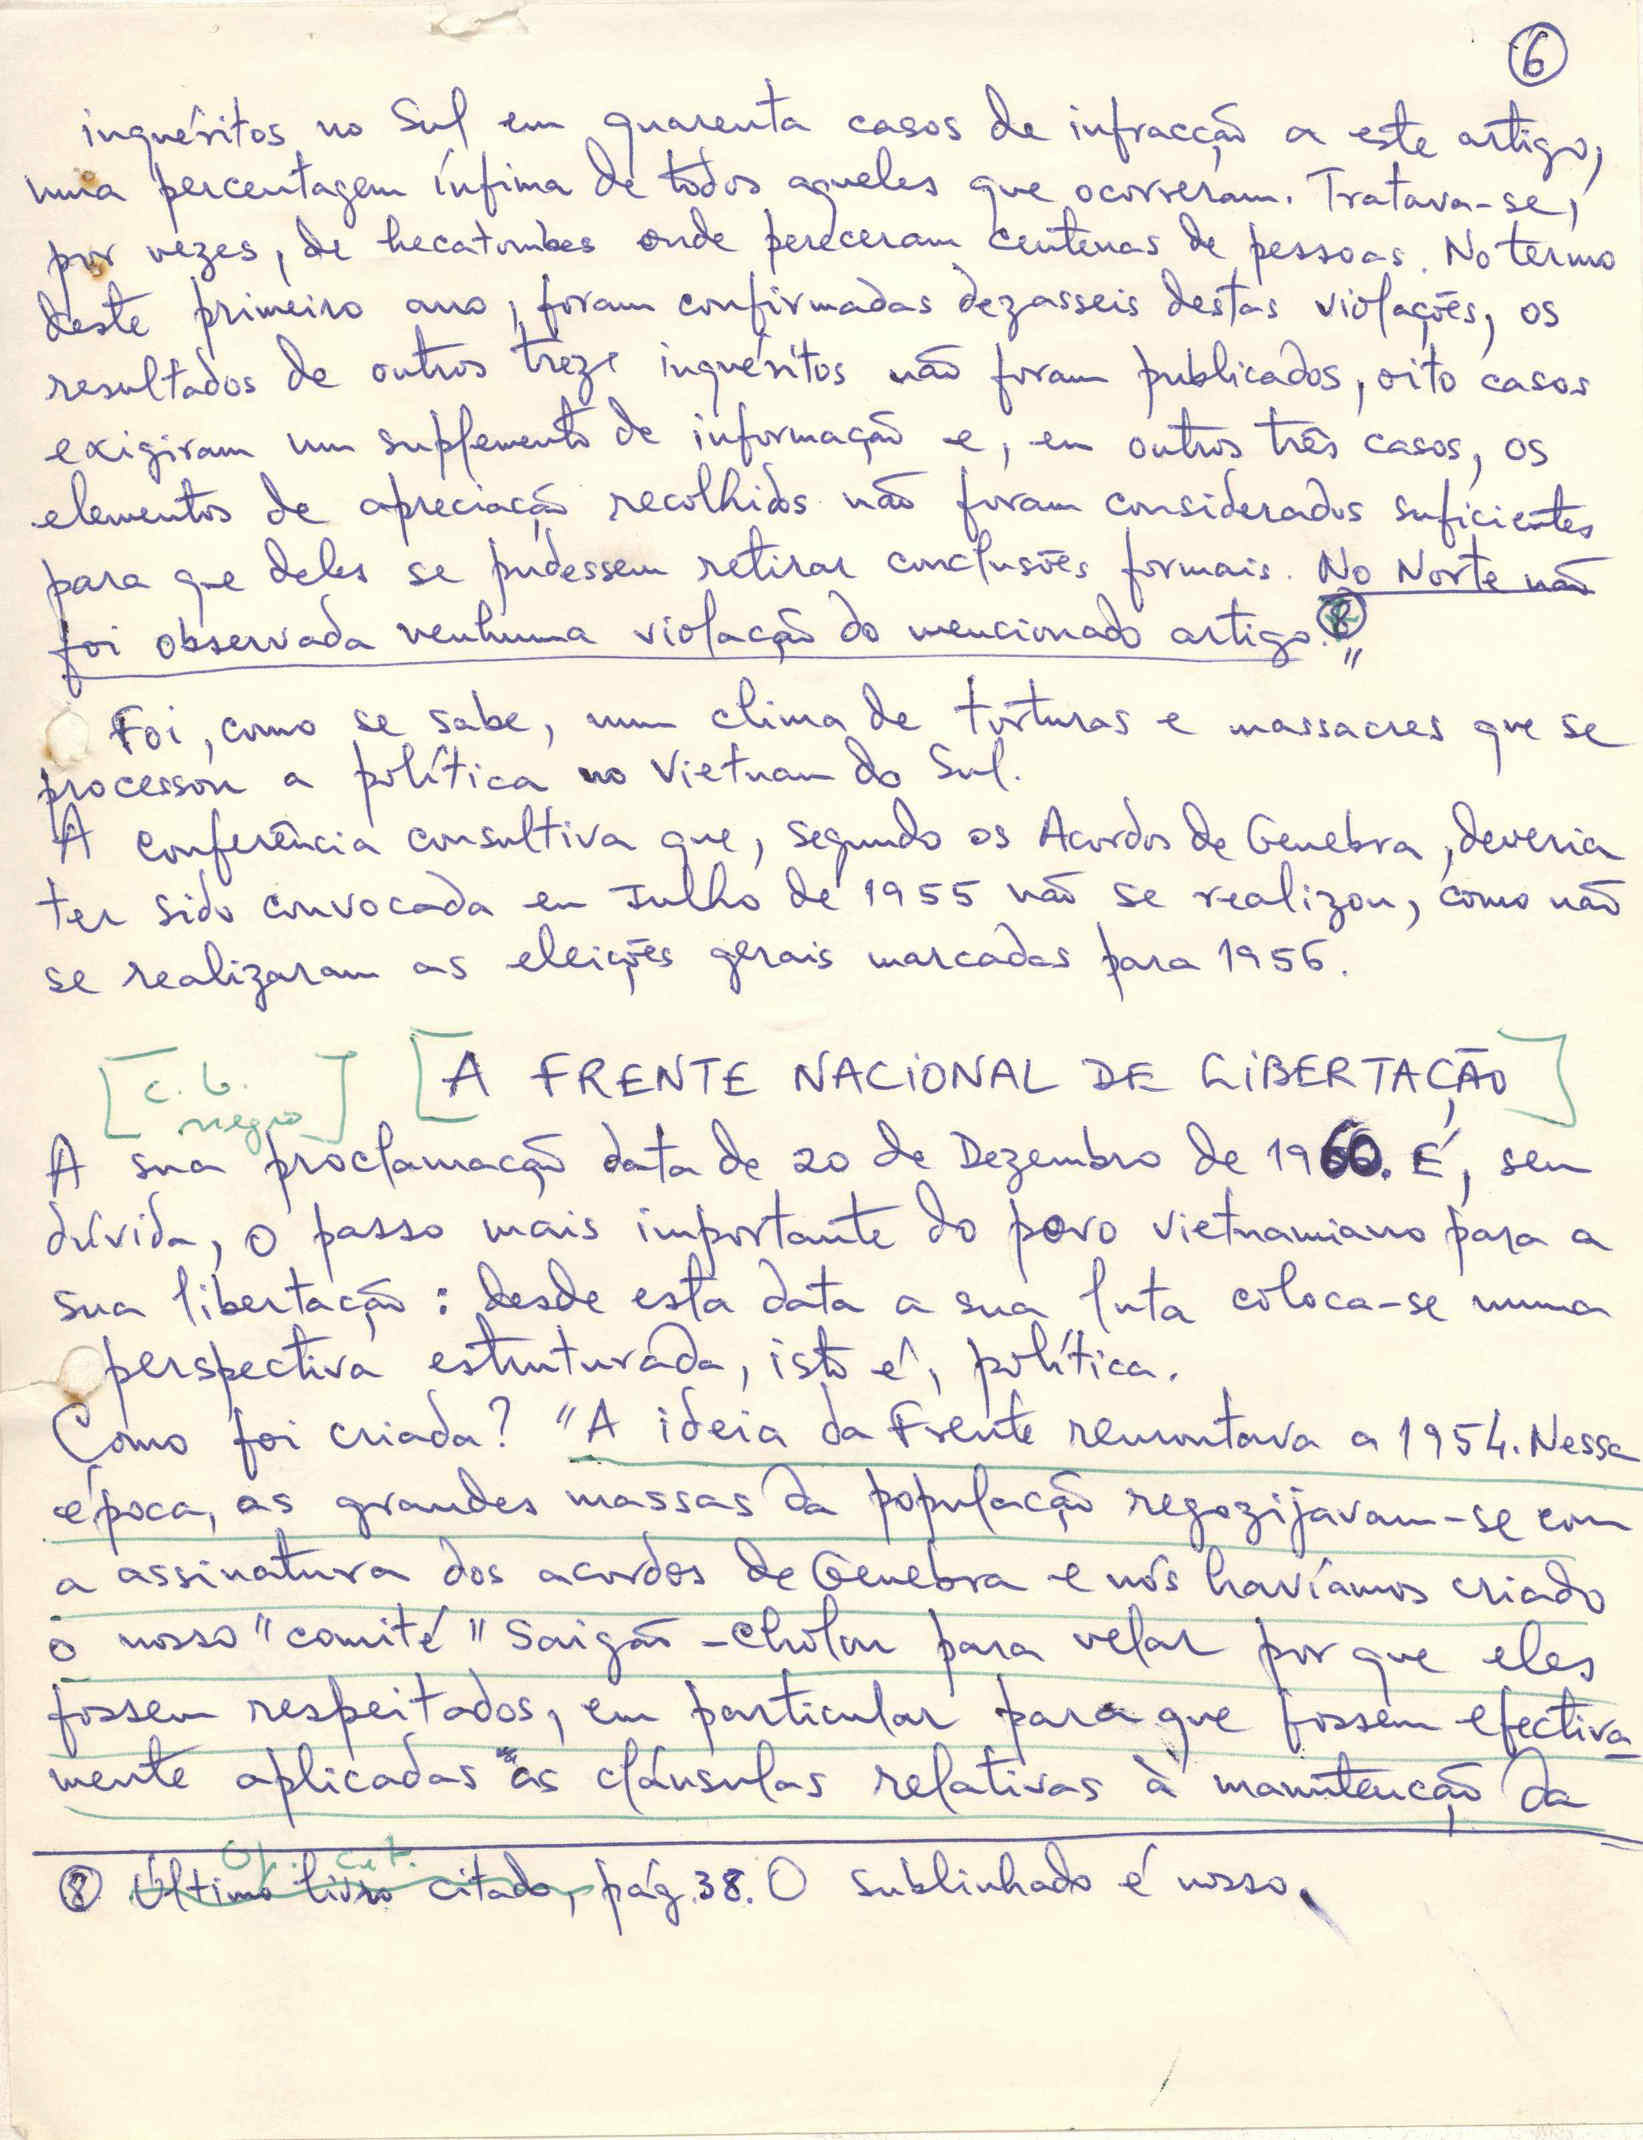 6
inquéritos no Sul em quarenta casos de infracção a este artigo,
uma percentagem ínfima de todos aqueles que ocorreram. Tratava-se,
por vezes, de hecatombes onde pereceram centenas de pessoas. No termo
deste primeiro ano, foram confirmadas dezasseis destas violações, os
resultados de outros treze inquéritos não foram publicados, oito casos
exigiram um suplemento de informação e, em outros três casos, os
elementos de apreciação recolhidos não foram considerados suficientes
para que deles se pudessem retirar conclusões formais. No Norte não
foi observada nenhuma violação do mencionado artigo. 8"
Foi, como se sabe, num clima de torturas e massacres que se
processou a política no Vietnam do Sul.
A conferência consultiva que, segundo os Acordos de Genebra, deveria
ter sido convocada em Julho de 1955 não se realizou, como não
se realizaram as eleições gerais marcadas para 1956.
[c. b. [A FRENTE NACIONAL DE LIBERTAÇÃO]
negro]
A sua proclamação data de 20 de Dezembro de 1960. É, sem
dúvida, o passo mais importante do povo vietnamiano para a
sua libertação: desde esta data a sua luta coloca-se numa
perspectiva estruturada, isto é, política.
Como foi criada? "A ideia da Frente remontava a 1954. Nessa
época, as grandes massas da população regozijavam-se com
a assinatura dos acordos de Genebra e nós havíamos criado
o nosso "comité" Saigão-Cholon para velar por que eles
fossem respeitados, em particular para que fossem efectiva-
mente aplicadas as cláusulas relativas à manutenção da
Op. cit.
8 Último livro citado, pág. 38. O sublinhado é nosso.